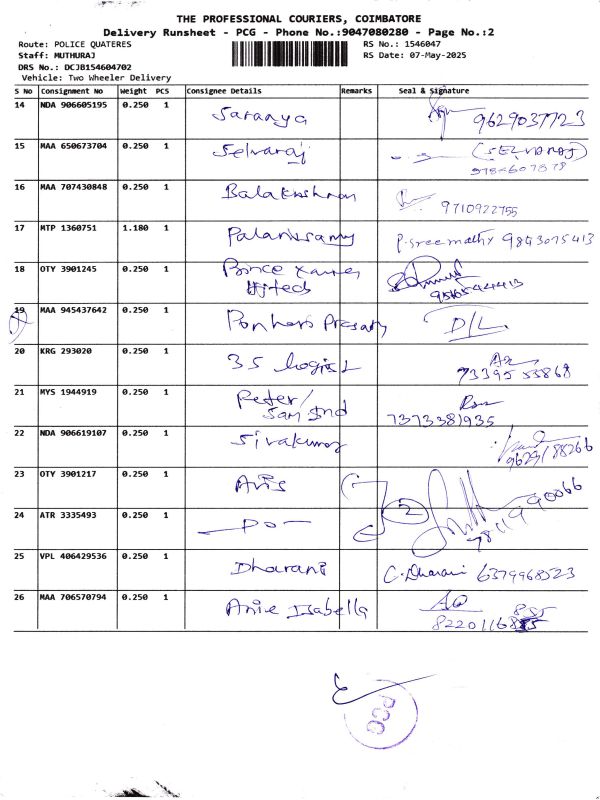 THE PROFESSIONAL COURIERS, COIMBATORE
Delivery Runsheet - PCG - Phone No.:9047080280 - Page No.:2
Route: POLICE QUATERES
RS No.: 1546047
Staff: MUTHURAJ
RS Date: 07-May-2025
DRS No.: DCJB154604702
Vehicle: Two Wheeler Delivery
S No Consignment No Weight PCS Consignee Details Remarks Seal & Signature
14 NDA 906605195 0.250 1 Saranya 9629037723
15 MAA 650673704 0.250 1 Selvaraj (SELVARAJ)
16 MAA 707430848 0.250 1 Balakrishnan 9710922755
17 MTP 1360751 1.180 1 Palanisamy P.Sreemathy 9843075413
18 OTY 3901245 0.250 1 Prince
19 MAA 945437642 0.250 1 D/L
20 KRG 293020 0.250 1 3S 73395 53868
21 MYS 1944919 0.250 1 Peter/
Sam Ind 7373381935
22 NDA 906619107 0.250 1 Sivakumar 9629188266
23 OTY 3901217 0.250 1 Avis
2 7811990066
24 ATR 3335493 0.250 1 - DO -
25 VPL 406429536 0.250 1 Dharani C.Dharani 6379968523
26 MAA 706570794 0.250 1 Anie Isabella 885
PCG